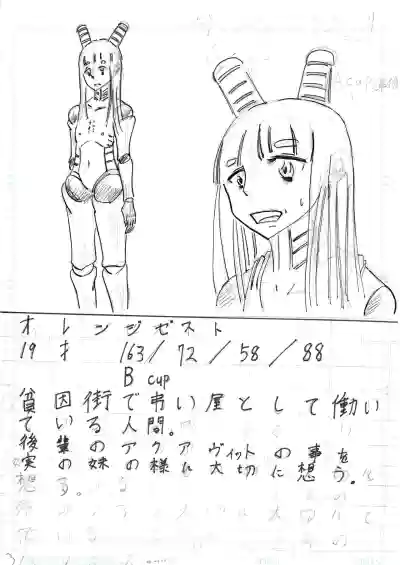 A cup
オレンジゼスト
19才 163/72/58/88
B cup
貧困街で弔い屋として働い
ている人間。
後輩のアクアヴィットの事を
実の妹の様に大切に想う。